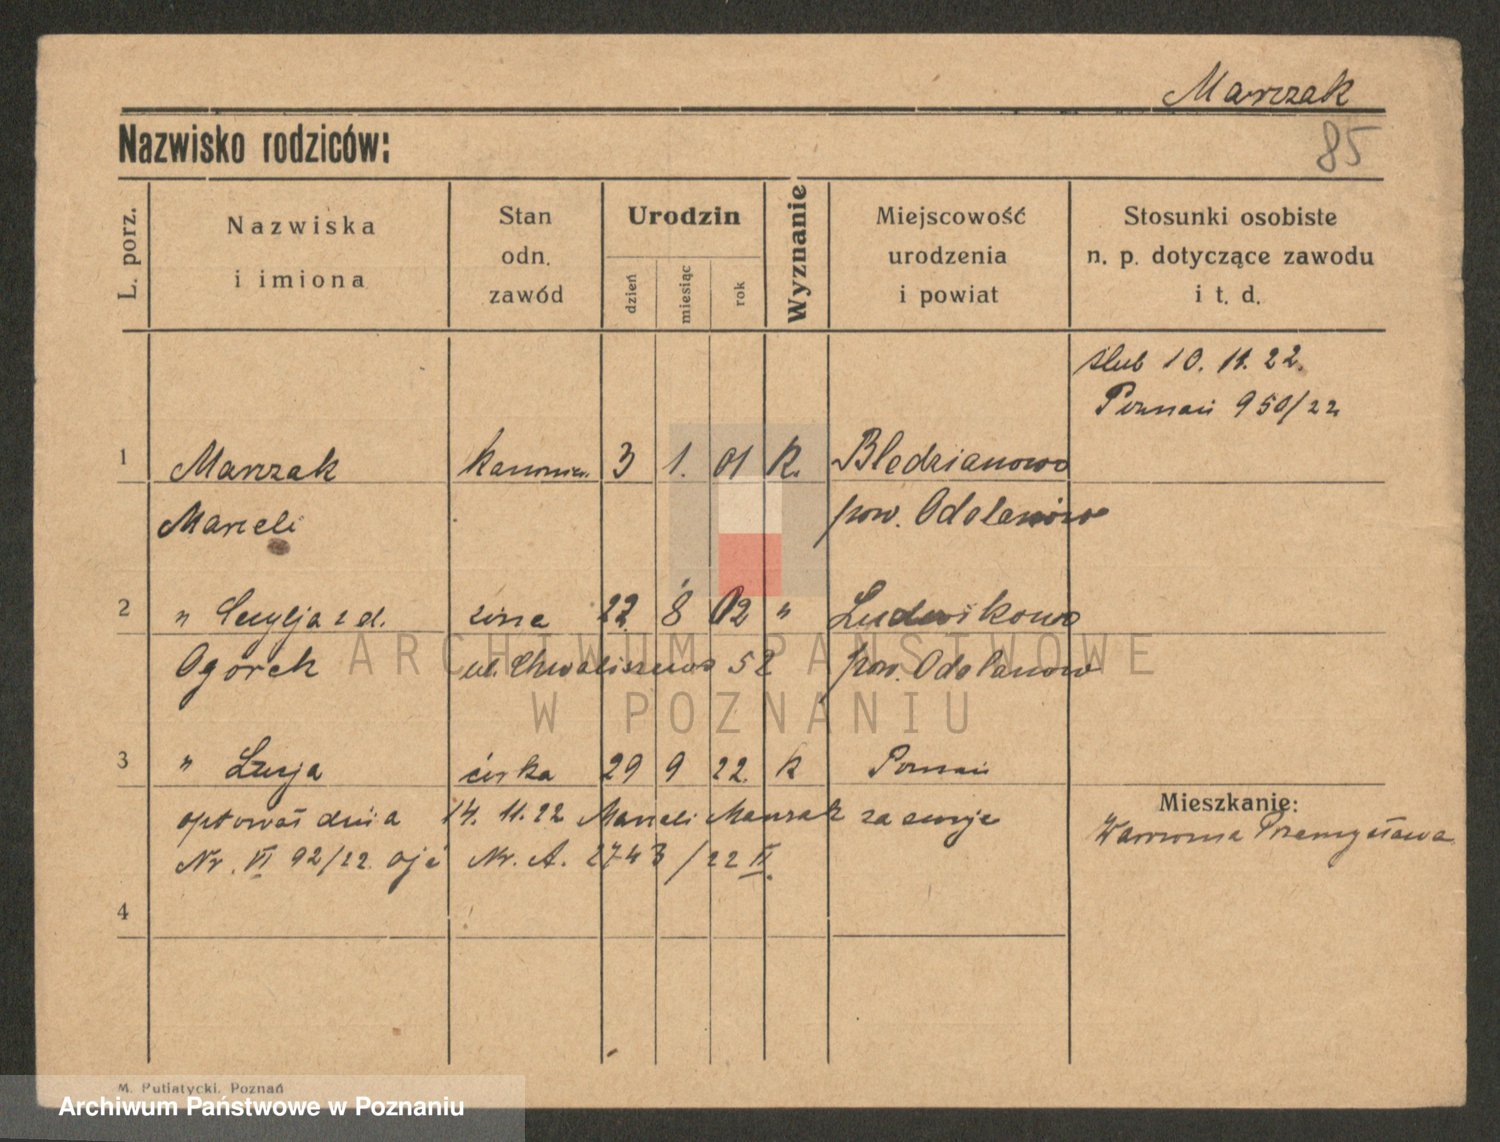 Marczak
85
Nazwisko rodziców:
L. porz.
Nazwiska
i imiona
Stan
odn.
zawód
Urodzin
dzień
miesiąc
rok
Wyznanie
Miejscowość
urodzenia
i powiat
Stosunki osobiste
n. p. dotyczące zawodu
i t. d.
ślub 10. 11. 22.
Poznań 950/22
1 Marczak kanonier. 3 1. 01 K. Bledzianowo
Marceli pow. Odolanów
2 " Cecylja z d. żona 22. 8 02 " Ludwikowo
Ogórek ul. Chwaliszewo 52 pow. Odolanow
3 " Łucja córka 29 9 22. k Poznań
Mieszkanie:
optował dnia 14. 11. 22 Marceli Marczak za swoje
Warowna Przemysława
Nr. VI 92/22. Nr. A. 2743/22 II.
4
ARCHIWUM PAŃSTWOWE
W POZNANIU
M. Putiatycki, Poznań
Archiwum Państwowe w Poznaniu